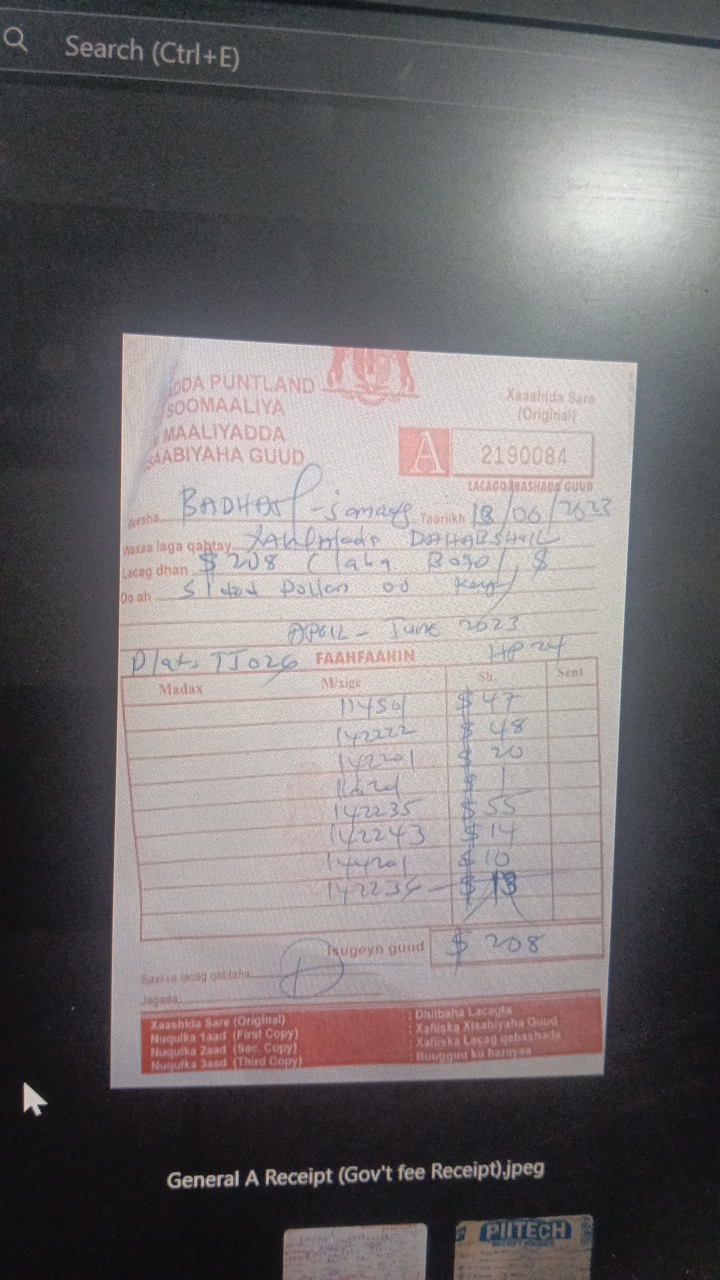 Search (Ctrl+E)
DDA PUNTLAND
SOOMAALIYA
MAALIYADDA
AABIYAHA GUUD
Xaashida Sare
(Original)
A 2190084
LACAGQABASHADA GUUD
Taariikh 18/06/2023
laga qabtay DAHABSHIIL
Lacag dhan $ 208
Oo ah Dollar oo
APRIL - June 2023
TJ026 FAAHFAAHIN HP 24
Madax M/xige Sh Sent
$ 47
142222 $ 48
142201 $ 20
$ 1
142235 $ 55
142243 $ 14
144201 $ 10
142236 $ 13
Isugeyn guud $ 208
Saxiixa lacag qabtaha
Jagada
Xaashida Sare (Original) : Dhiibaha Lacagta
Nuqulka 1aad (First Copy) : Xafiiska Xisabiyaha Guud
Nuqulka 2aad (Sec. Copy) : Xafiiska Lacag qabashada
Nuqulka 3aad (Third Copy) : Buugguu ku harayaa
General A Receipt (Gov't fee Receipt).jpeg
PIITECH